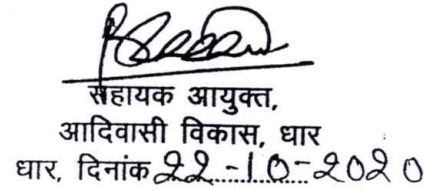 सहायक आयुक्त,
आदिवासी विकास, धार
धार, दिनांक 22-10-2020